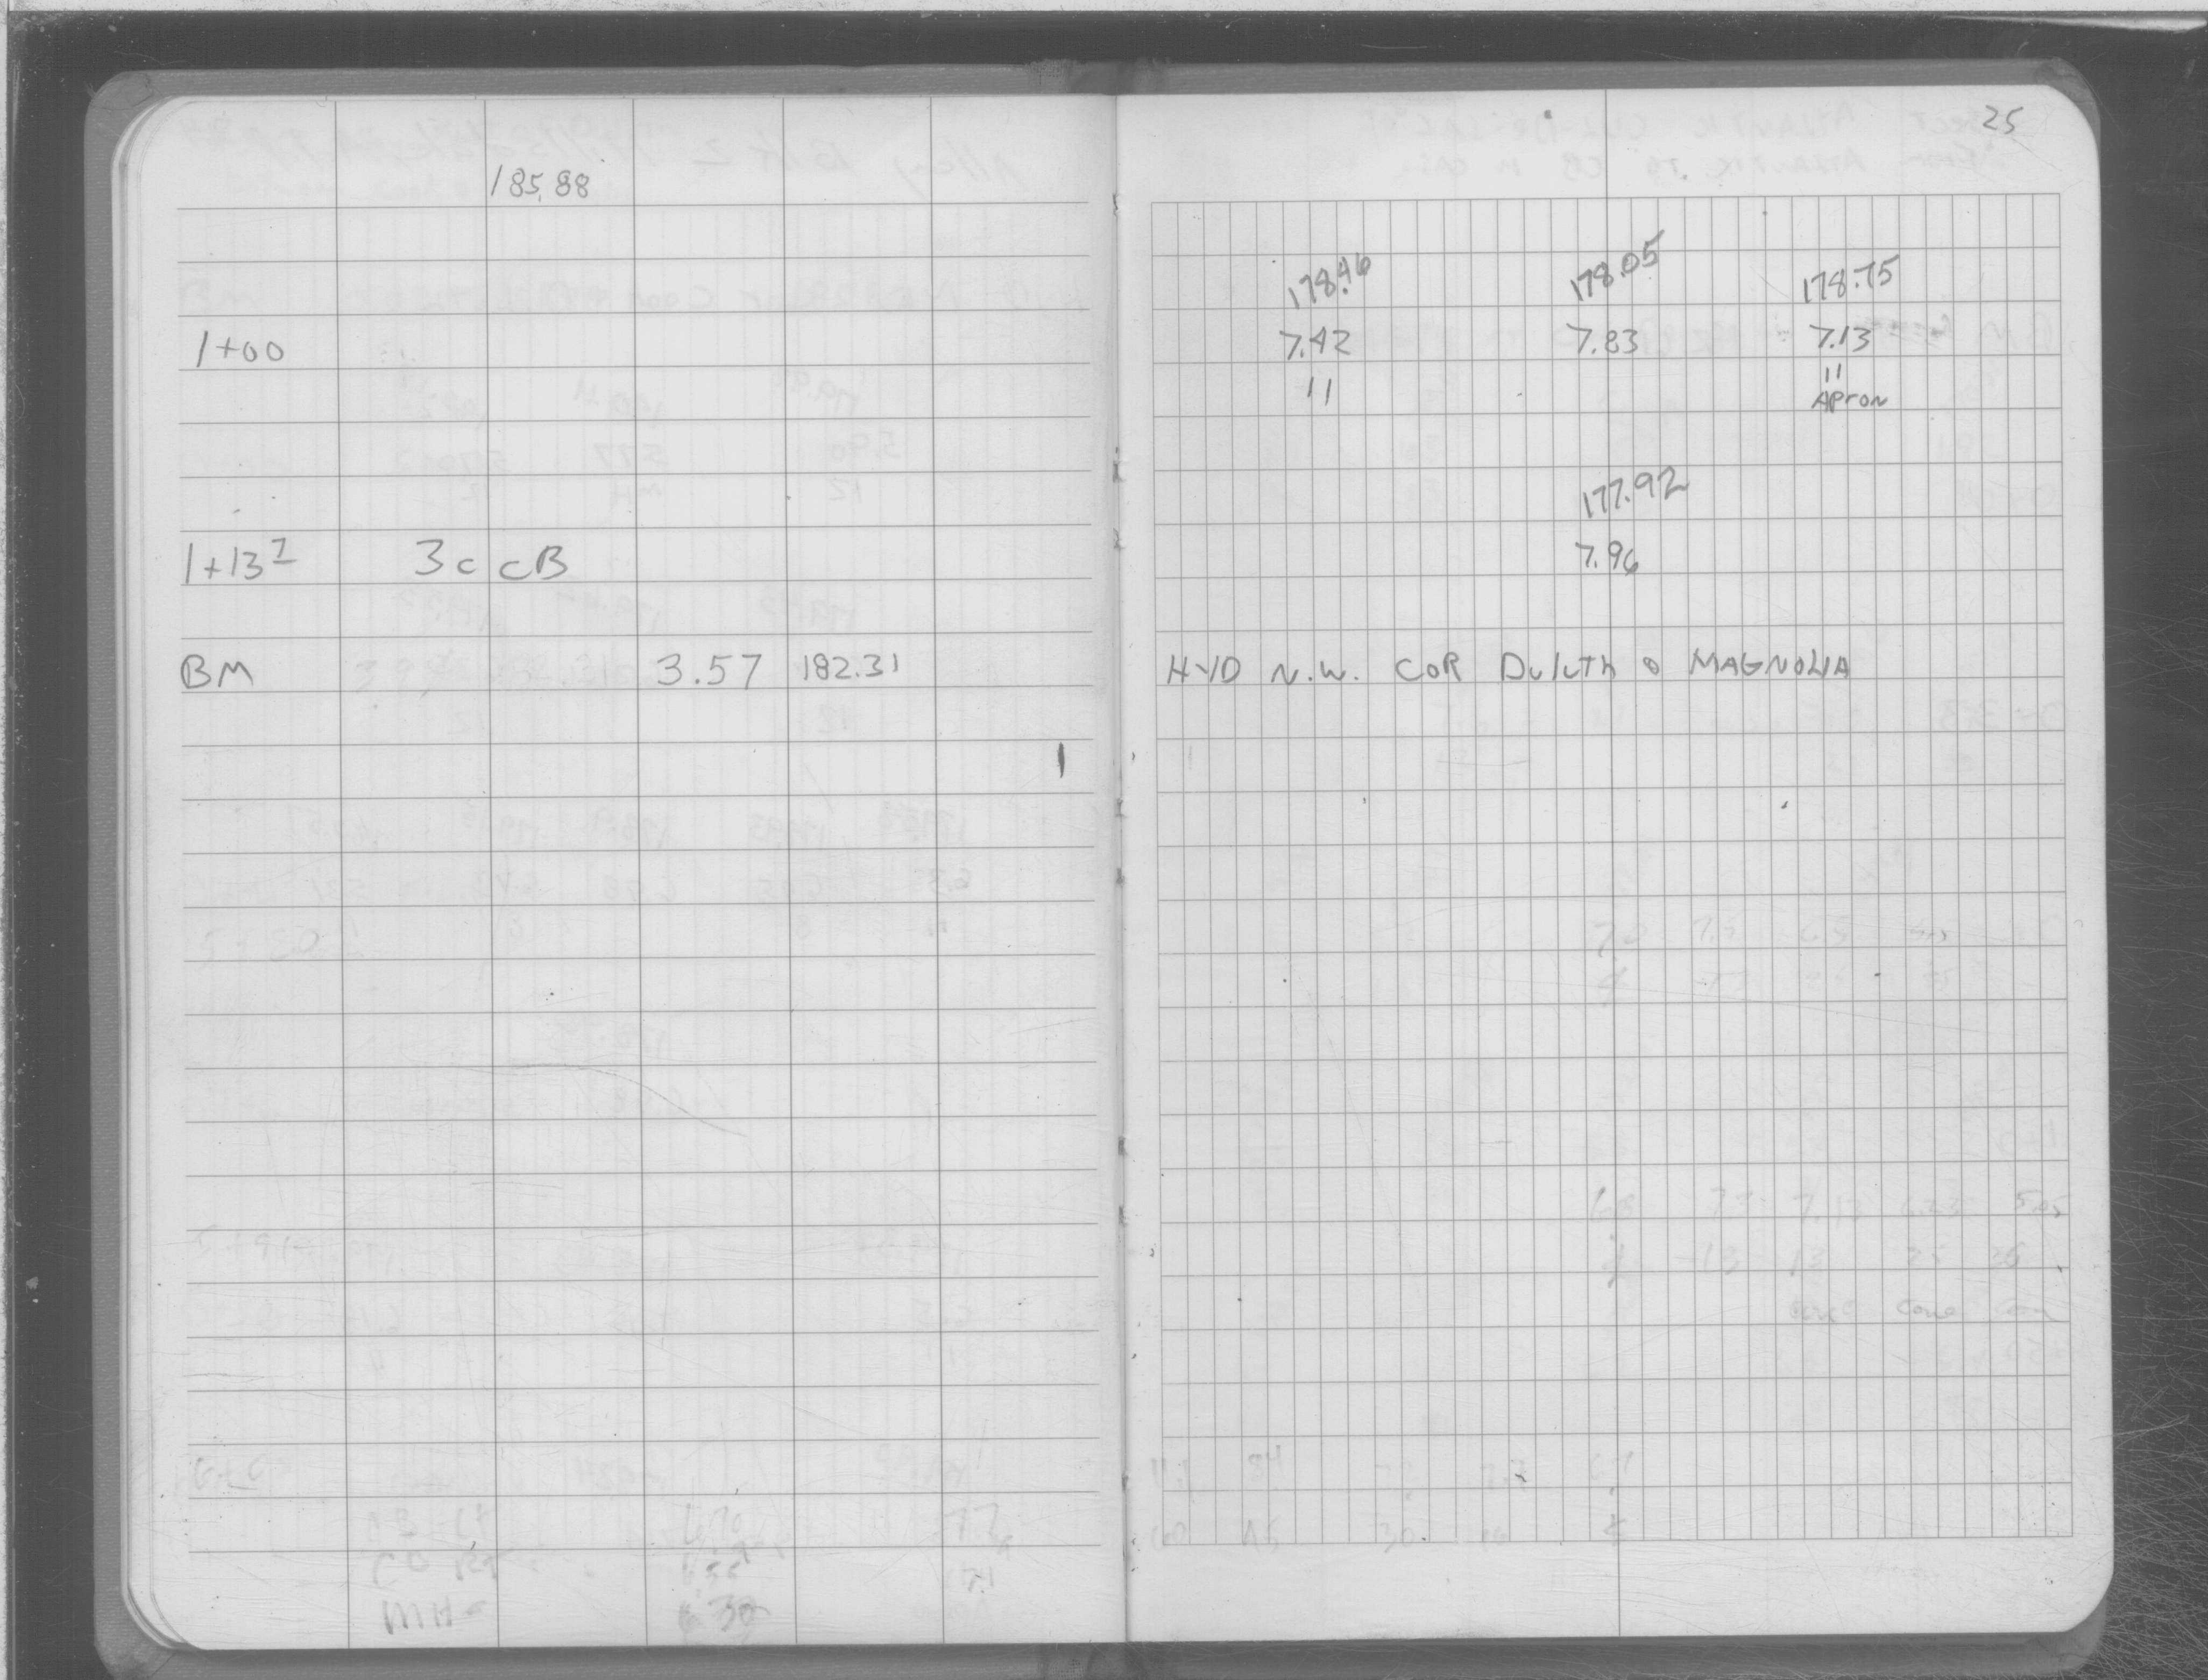 25
185.88
178.46 178.05 178.75
1+00 7.42 7.83 7.13
11 11
APron
177.92
1+13² 3c CB 7.96
BM 3.57 182.31 HYD N.W. COR DuluTh & MAGNOLIA